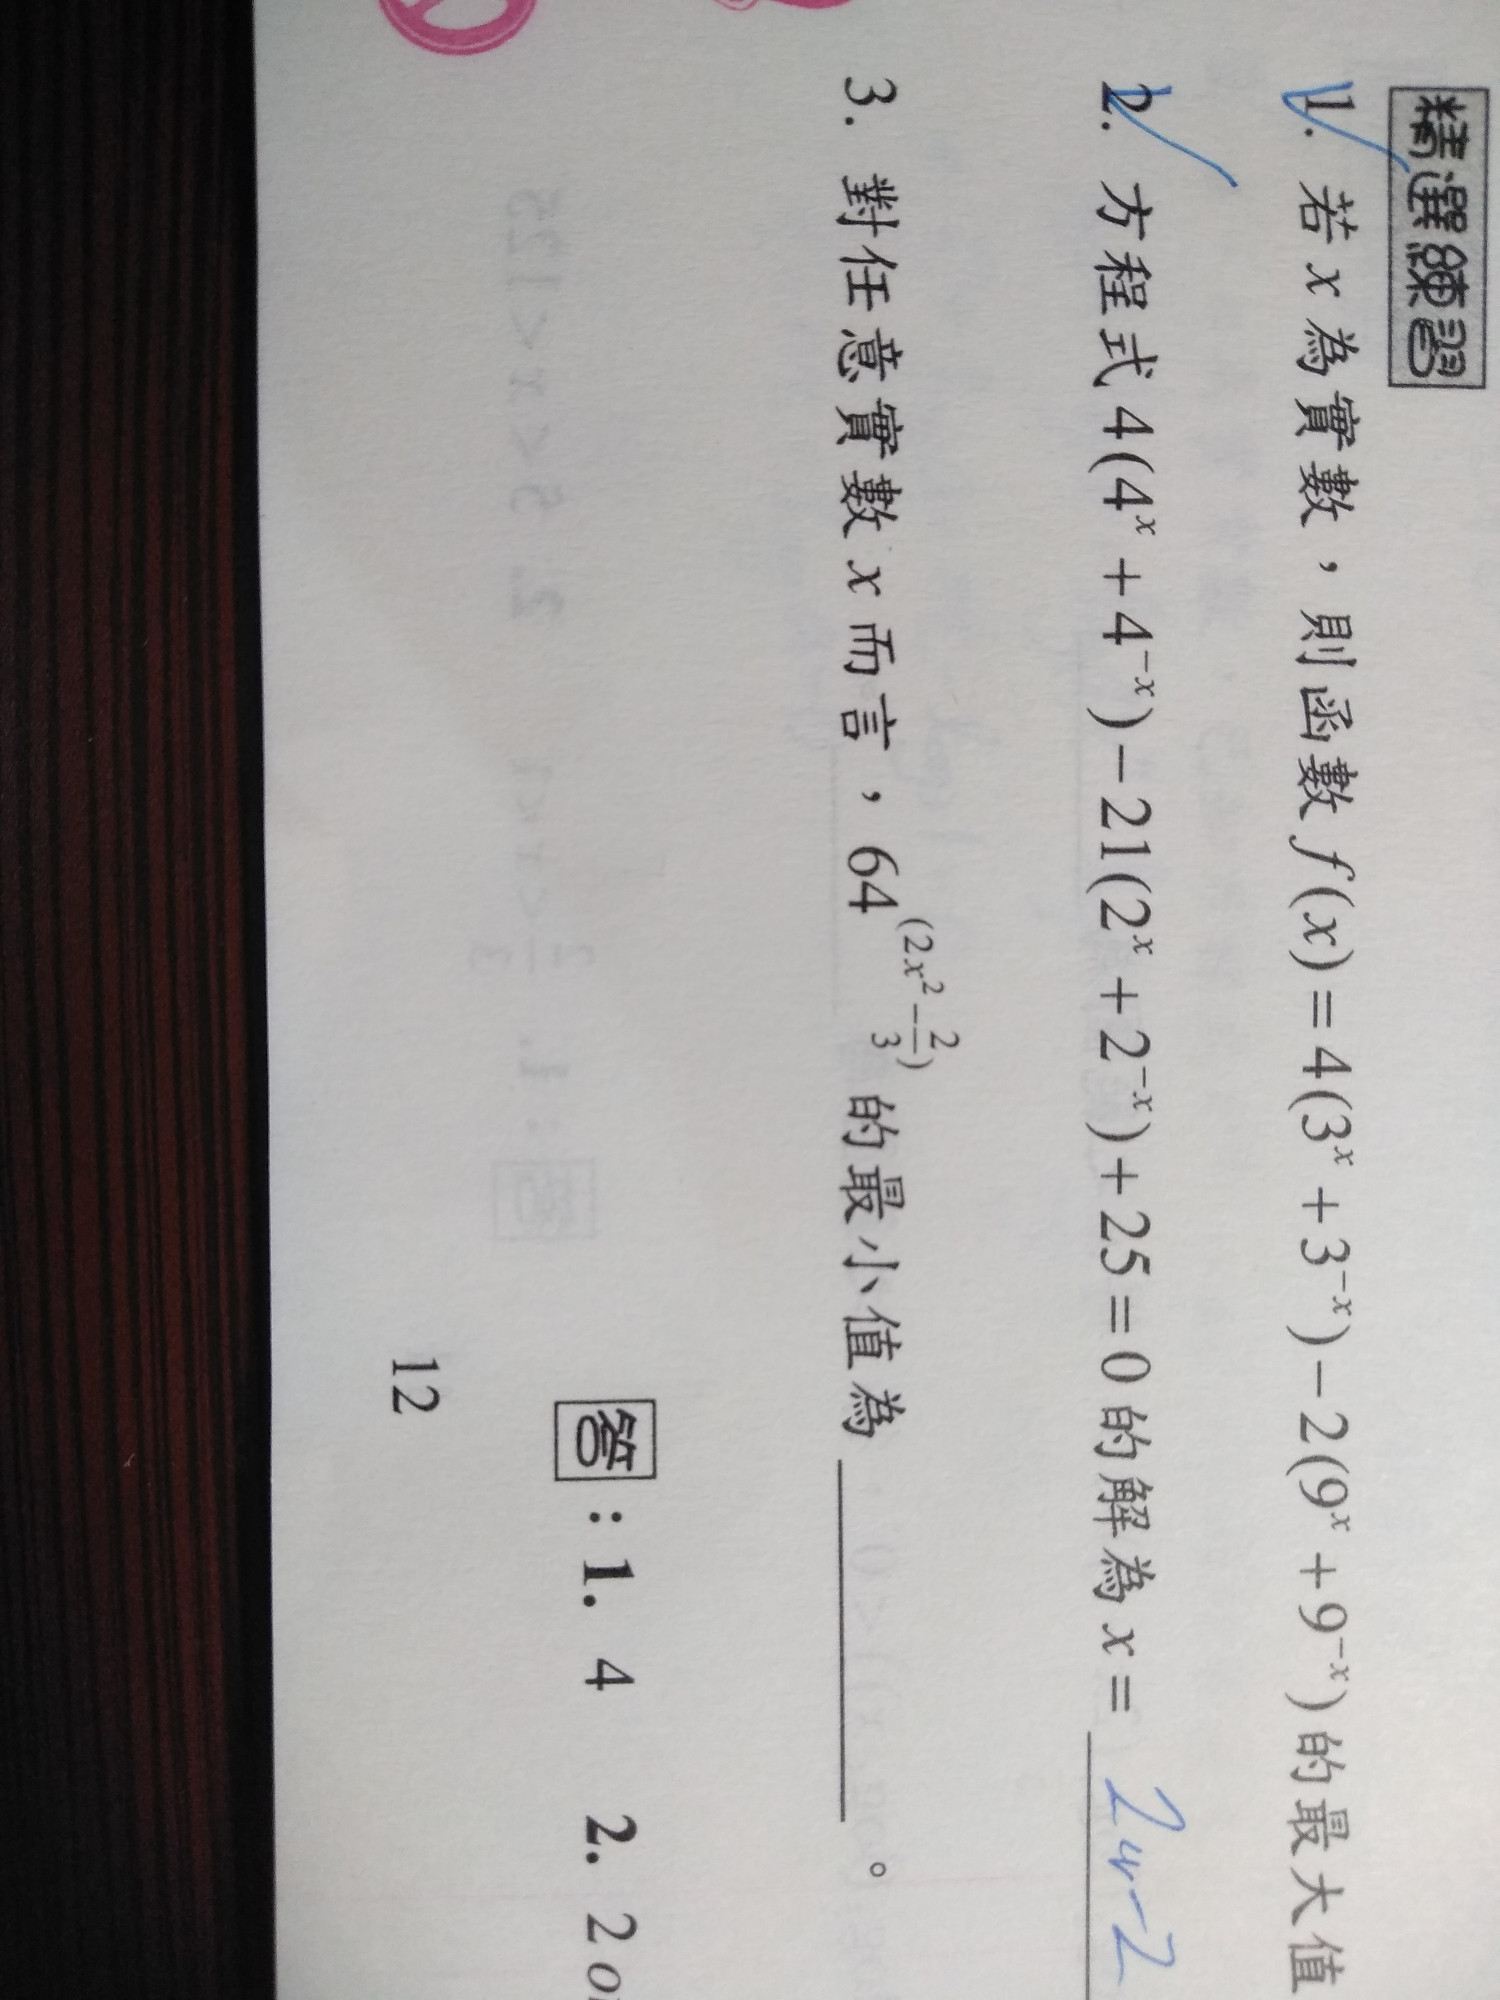 精選練習
1. 若 x 為實數，則函數 f(x)=4(3^x+3^{-x})-2(9^x+9^{-x})的最大值
2. 方程式 4(4^x+4^{-x})-21(2^x+2^{-x})+25=0 的解為 x= 2 or -2
3. 對任意實數 x 而言，64^{(2x^2-\frac{2}{3})} 的最小值為______。
答：1. 4 2. 2 or
12